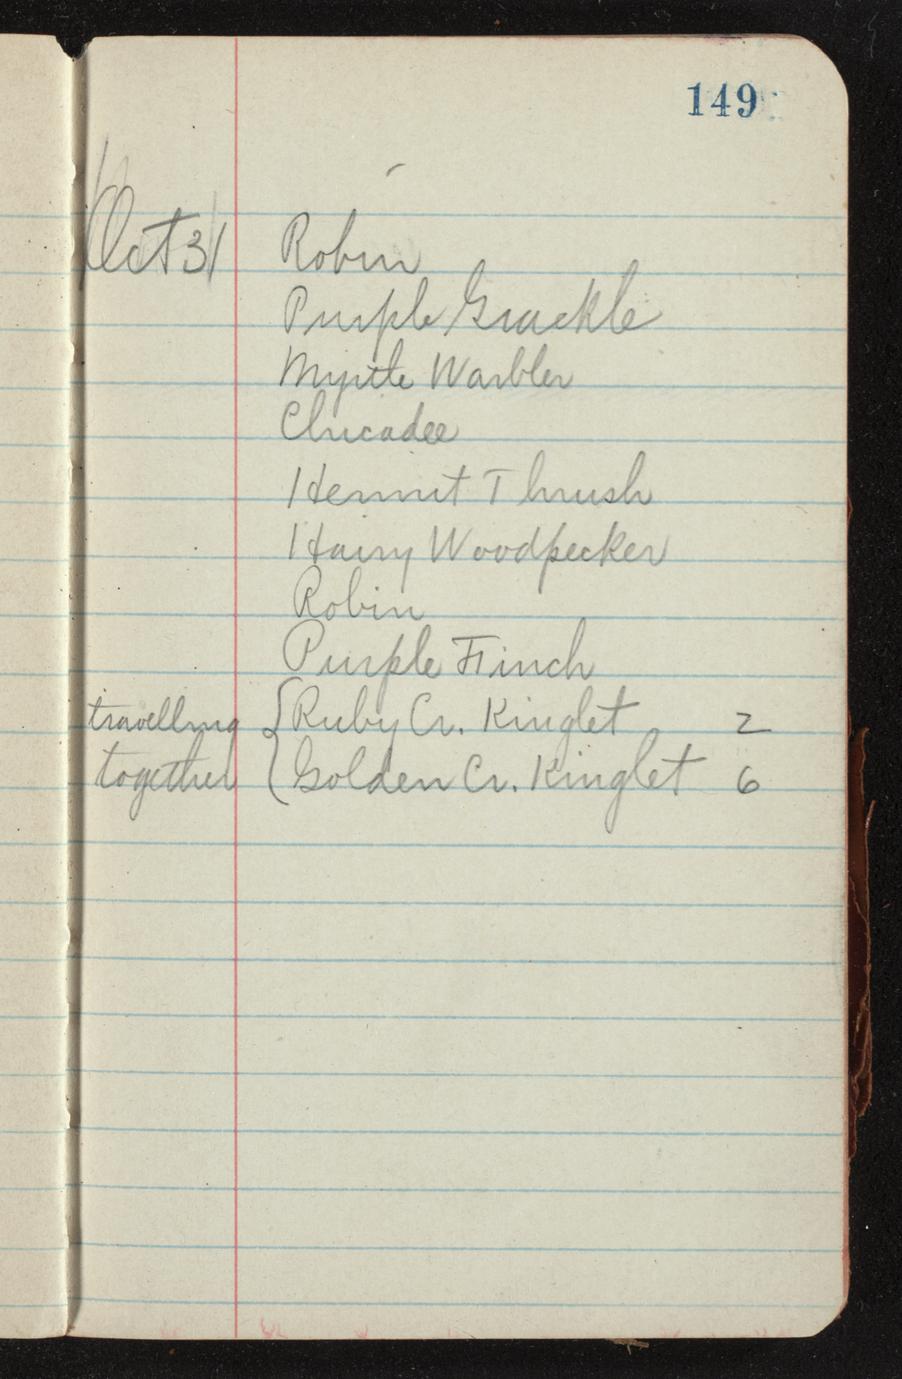 149
Oct 31 Robin
Purple Grackle
Myrtle Warbler
Chicadee
Hermit Thrush
Hairy Woodpecker
Robin
Purple Finch
travelling { Ruby Cr. Kinglet 2
together Golden Cr. Kinglet 6